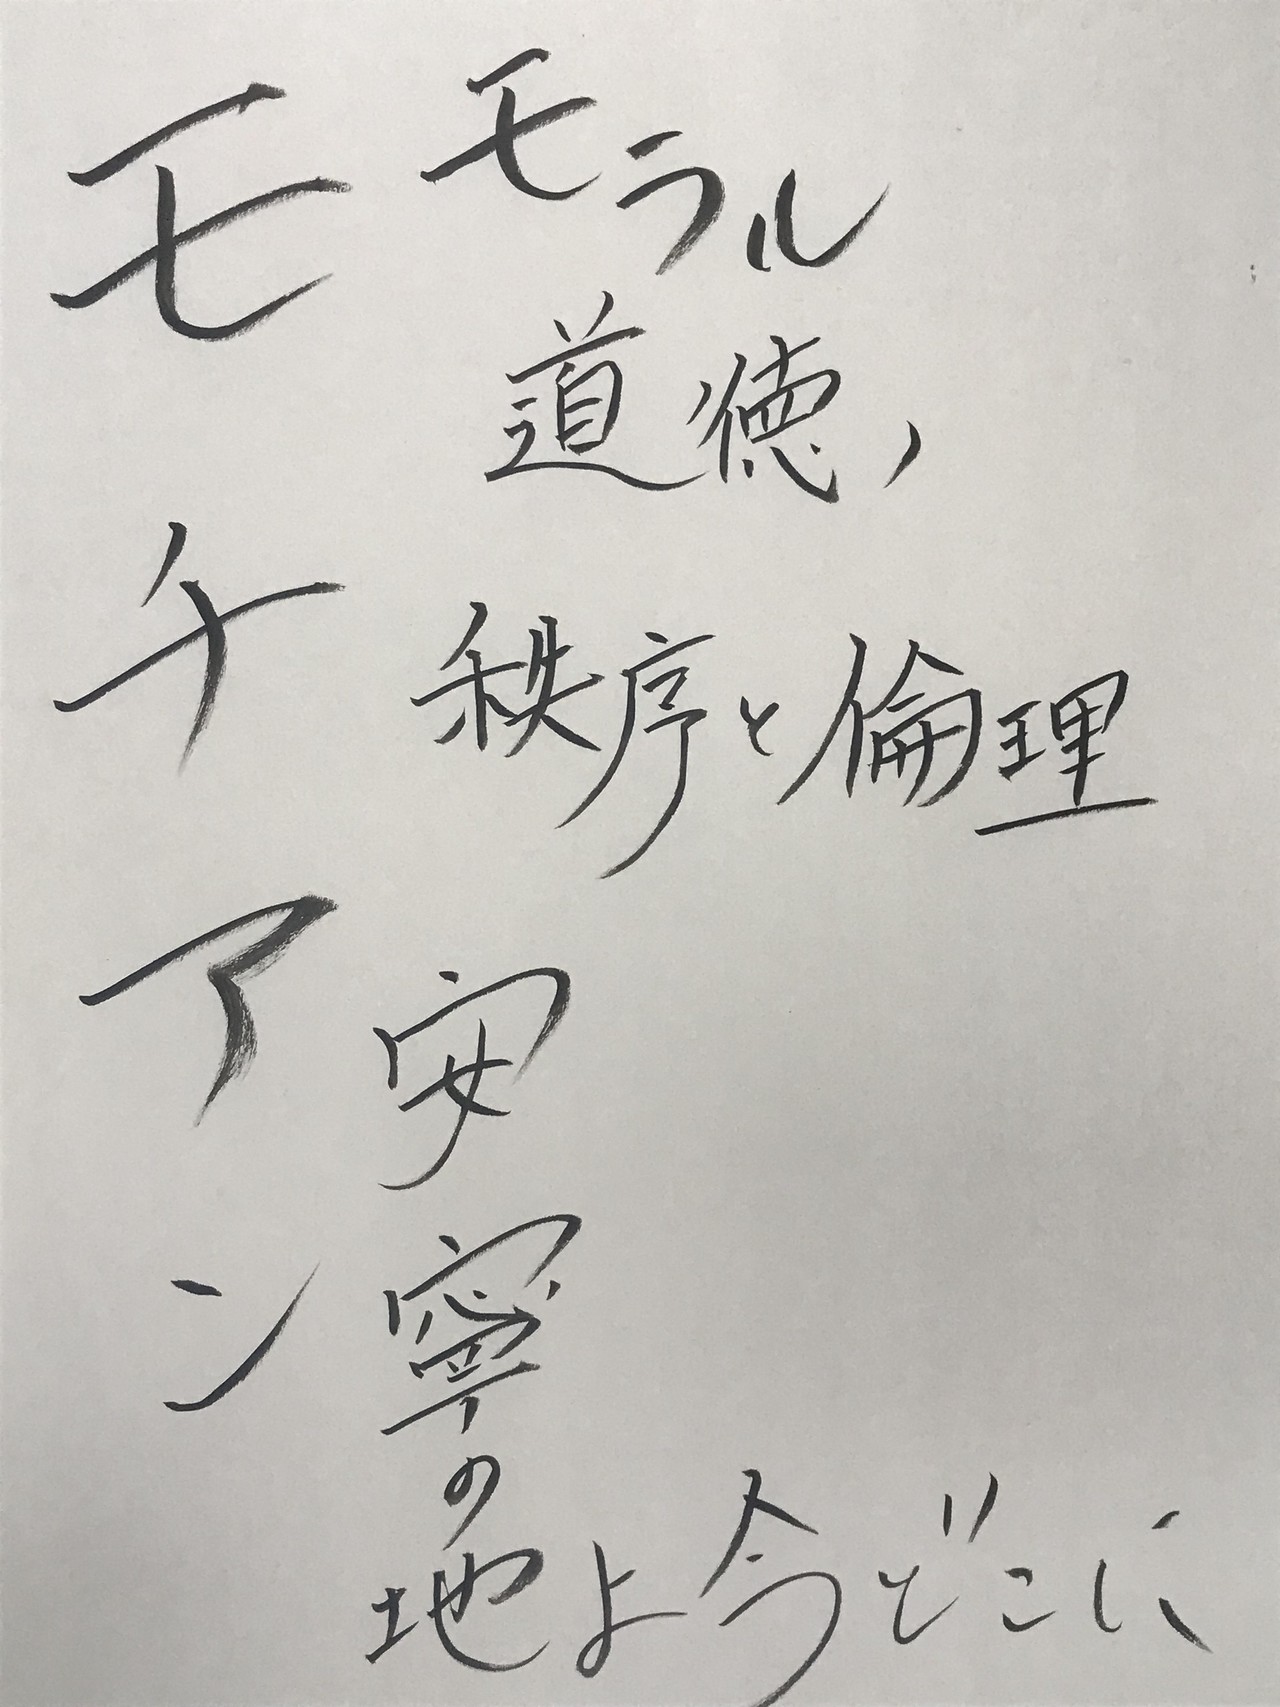 モ モラル
道徳、
チ 秩序と倫理
ア 安
ン 寧
の
地よ今どこに